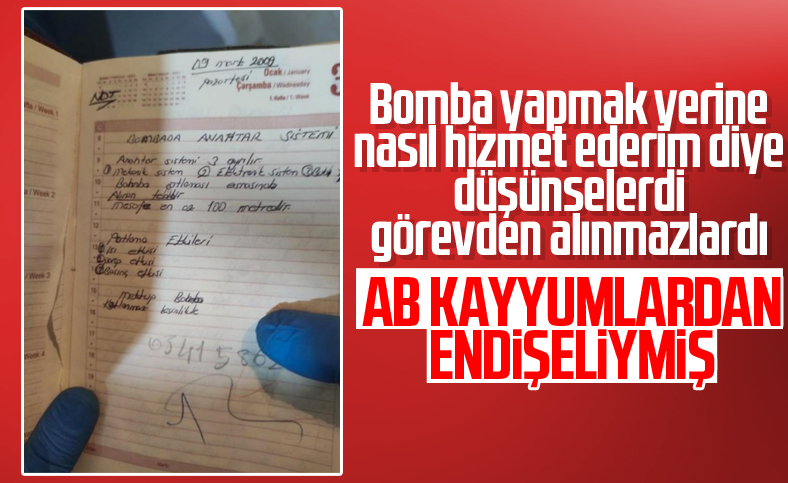 09 mart 2009
pazartesi
Ocak / January
Çarşamba / Wednesday
1. Hafta / 1. Week
3
NOT
BOMBADA ANAHTAR SİSTEMİ
Anahtar sistemi 3 ayrılır
① Mekanik sistem ② Elektronik sistem
Bomba patlaması esnasında
mesafe en az 100 metredir
Patlama Etkileri
① ısı etkisi
etkisi
③ basınç etkisi
mektup Bomba
Bomba yapmak yerine
nasıl hizmet ederim diye
düşünselerdi
görevden alınmazlardı
AB KAYYUMLARDAN
ENDİŞELİYMİŞ